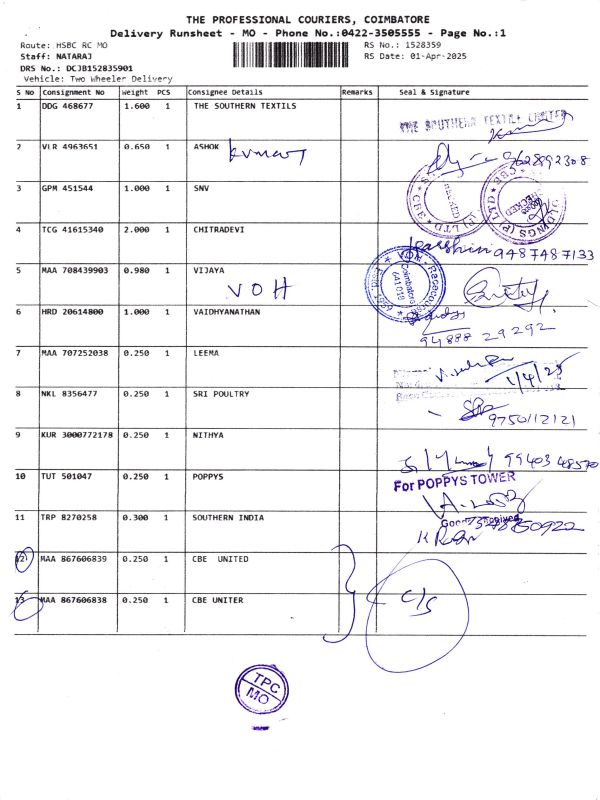 THE PROFESSIONAL COURIERS, COIMBATORE
Delivery Runsheet - MO - Phone No.:0422-3505555 - Page No.:1
Route: HSBC RC MO RS No.: 1528359
Staff: NATARAJ RS Date: 01-Apr-2025
DRS No.: DCJB152835901
Vehicle: Two Wheeler Delivery
S No Consignment No Weight PCS Consignee Details Remarks Seal & Signature
1 DDG 468677 1.600 1 THE SOUTHERN TEXTILS
THE SOUTHERN TEXTILE LIMITED
2 VLR 4963651 0.650 1 ASHOK
kumar 9628992308
3 GPM 451544 1.000 1 SNV
CHECKED
HOLDINGS (P) LTD
CBE
4 TCG 41615340 2.000 1 CHITRADEVI
9487487133
5 MAA 708439903 0.980 1 VIJAYA
VOH
Racecourse
Coimbatore
641 018
6 HRD 20614800 1.000 1 VAIDHYANATHAN
94888 29292
7 MAA 707252038 0.250 1 LEEMA
1/4/25
8 NKL 8356477 0.250 1 SRI POULTRY
9750112121
9 KUR 3000772178 0.250 1 NITHYA
99403 48570
10 TUT 501047 0.250 1 POPPYS
For POPPYS TOWER
11 TRP 8270258 0.300 1 SOUTHERN INDIA
12 MAA 867606839 0.250 1 CBE UNITED
13 MAA 867606838 0.250 1 CBE UNITER
C/S
TPC
MO